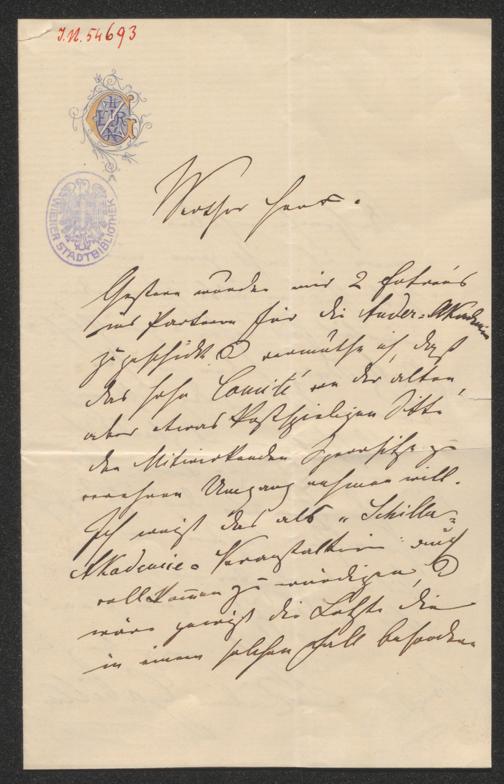 I.N. 54693
WIENER STADTBIBLIOTHEK
Werther Herr.
Gestern wurden mir 2 Entrées
ins Parterre für die Ander-Akademie
zugeschickt & vermuthe ich, daß
das hohe Comité von der alten,
aber etwas kostspieligen Sitte
den Mitwirkenden Sperrsitze zu
verehren Umgang nehmen will.
Ich weiß das als „Schiller-
Akademie-Veranstalterin auch
vollkommen zu würdigen, &
wäre gewiß die Letzte die
in einem solchen Fall besondere